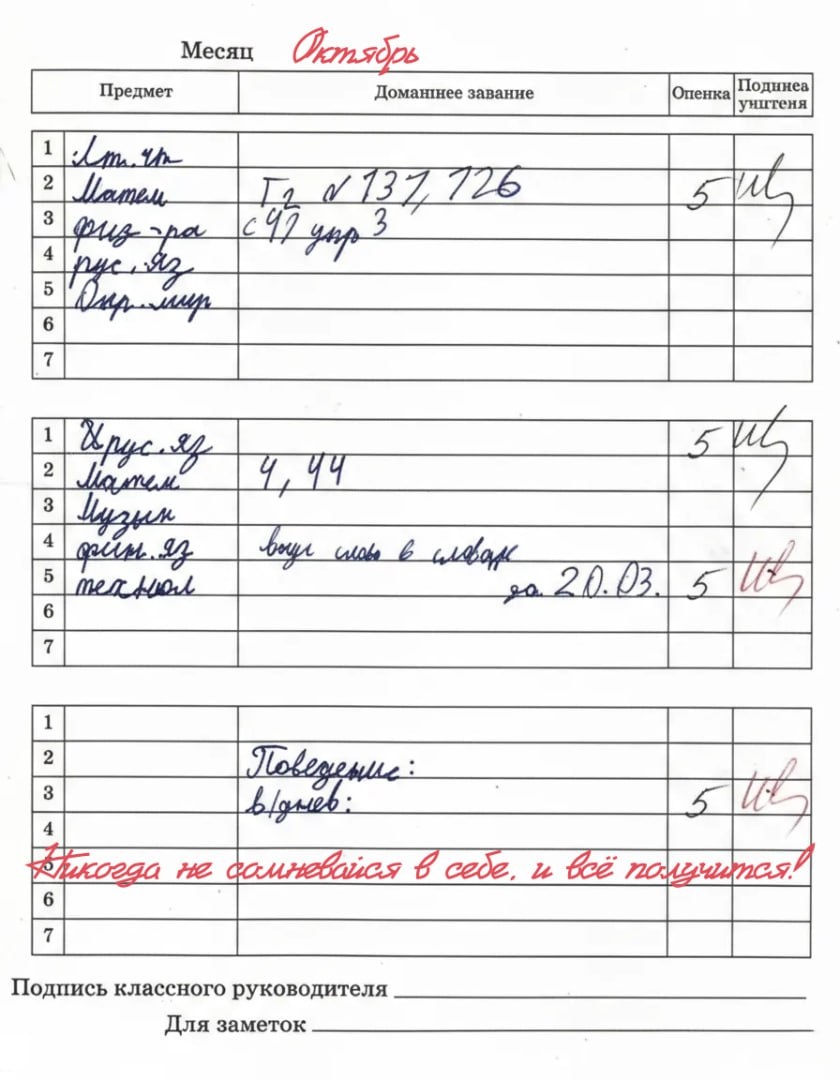 Месяц Октябрь
Предмет Домашнее завание Опенка Подписа унштеня
1 Лт. чт
2 Матем Т2 №137, 126 5
3 физ-ра с 41 упр 3
4 рус. яз
5 Окр. мир
6
7
1 рус. яз 5
2 Матем 4, 44
3 Музык
4 фин. яз в словаре
5 технол до 20.03. 5
6
7
1
2 Поведение:
3 в/днев: 5
4
5 Никогда не сомневайся в себе, и всё получится!
6
7
Подпись классного руководителя
Для заметок